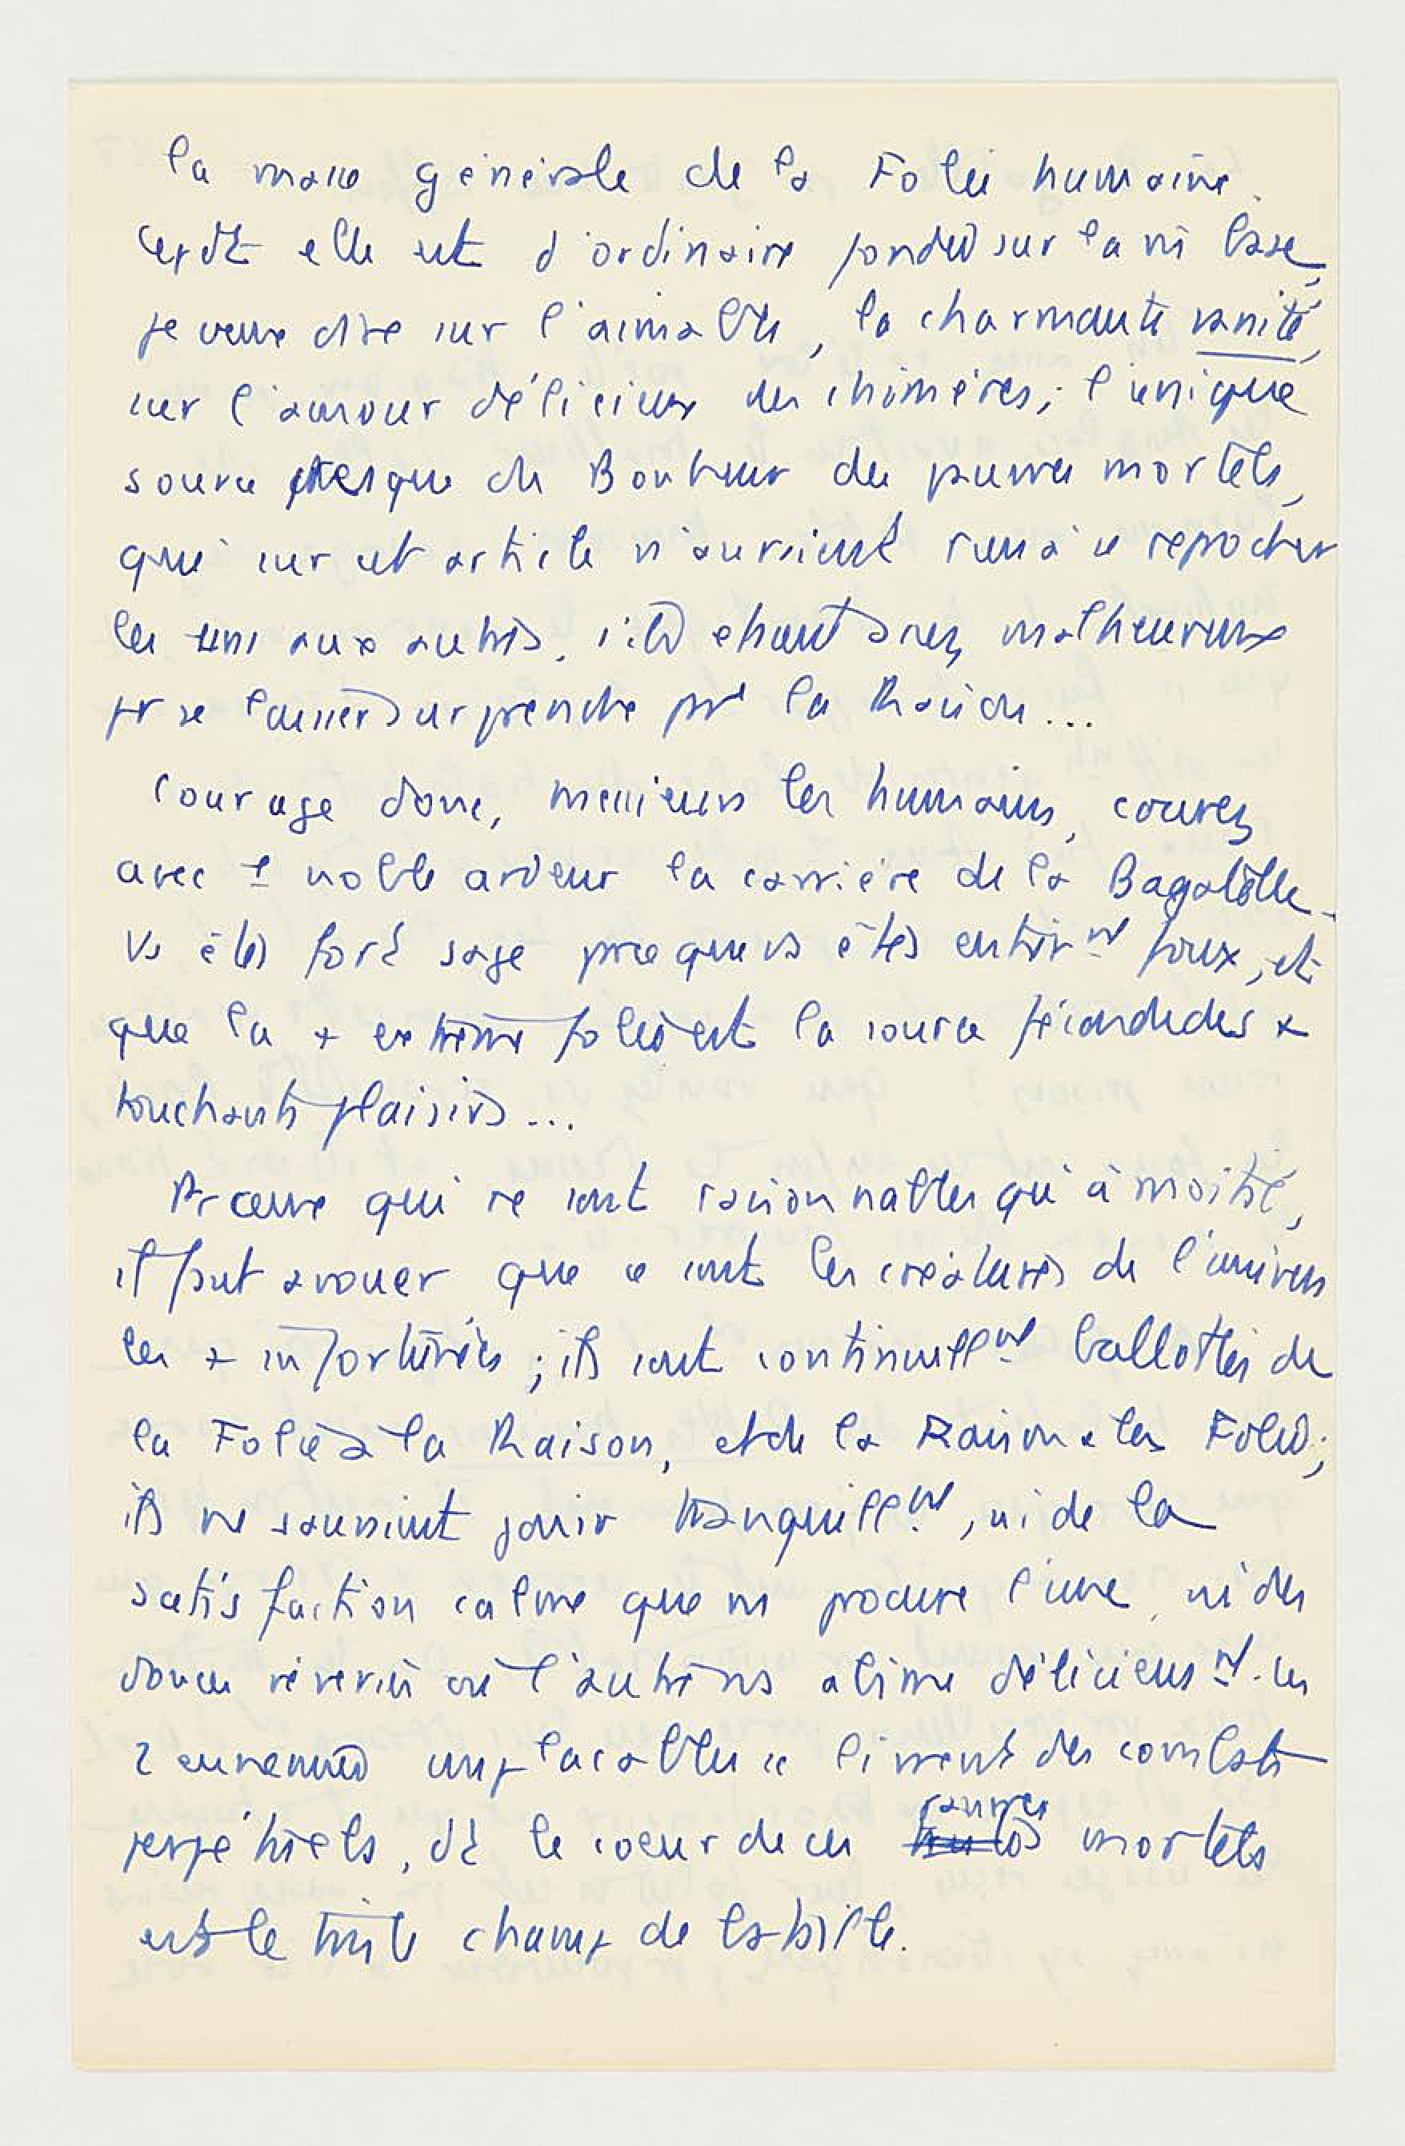 la masse générale de la Folie humaine.
Cepdt elle est d'ordinaire fondée sur la m̂ base,
je veux dire sur l'aimable, la charmante vanité,
sur l'amour délicieux des chimères ; l'unique
source presque du Bonheur des pauvres mortels,
qui sur cet article n'auraient rien à se reprocher
les uns aux autres, s'ils étaient assez malheureux
pr se laisser surprendre par la Raison...
Courage donc, messieurs les humains, courez
avec 1 noble ardeur la carrière de la Bagatelle.
Vs êtes fort sage parce que vs êtes entièrnt foux, et
que la + extrême folie est la source féconde des +
touchants plaisirs...
Pr ceux qui ne sont raisonnables qu'à moitié,
il faut avouer que ce sont les créatures de l'univers
les + infortunées ; ils sont continuellnt ballottés de
la Folie à la Raison, et de la Raison à la Folie ;
ils ne sauraient jouir tranquillnt, ni de la
satisfaction calme que ns procure l'une, ni des
douces rêveries où l'autre ns abime délicieusnt. Ces
2 ennemies implacables se livrent des combats
perpétuels, dt le coeur de ces pauvres mortels
est le triste champ de bataille.